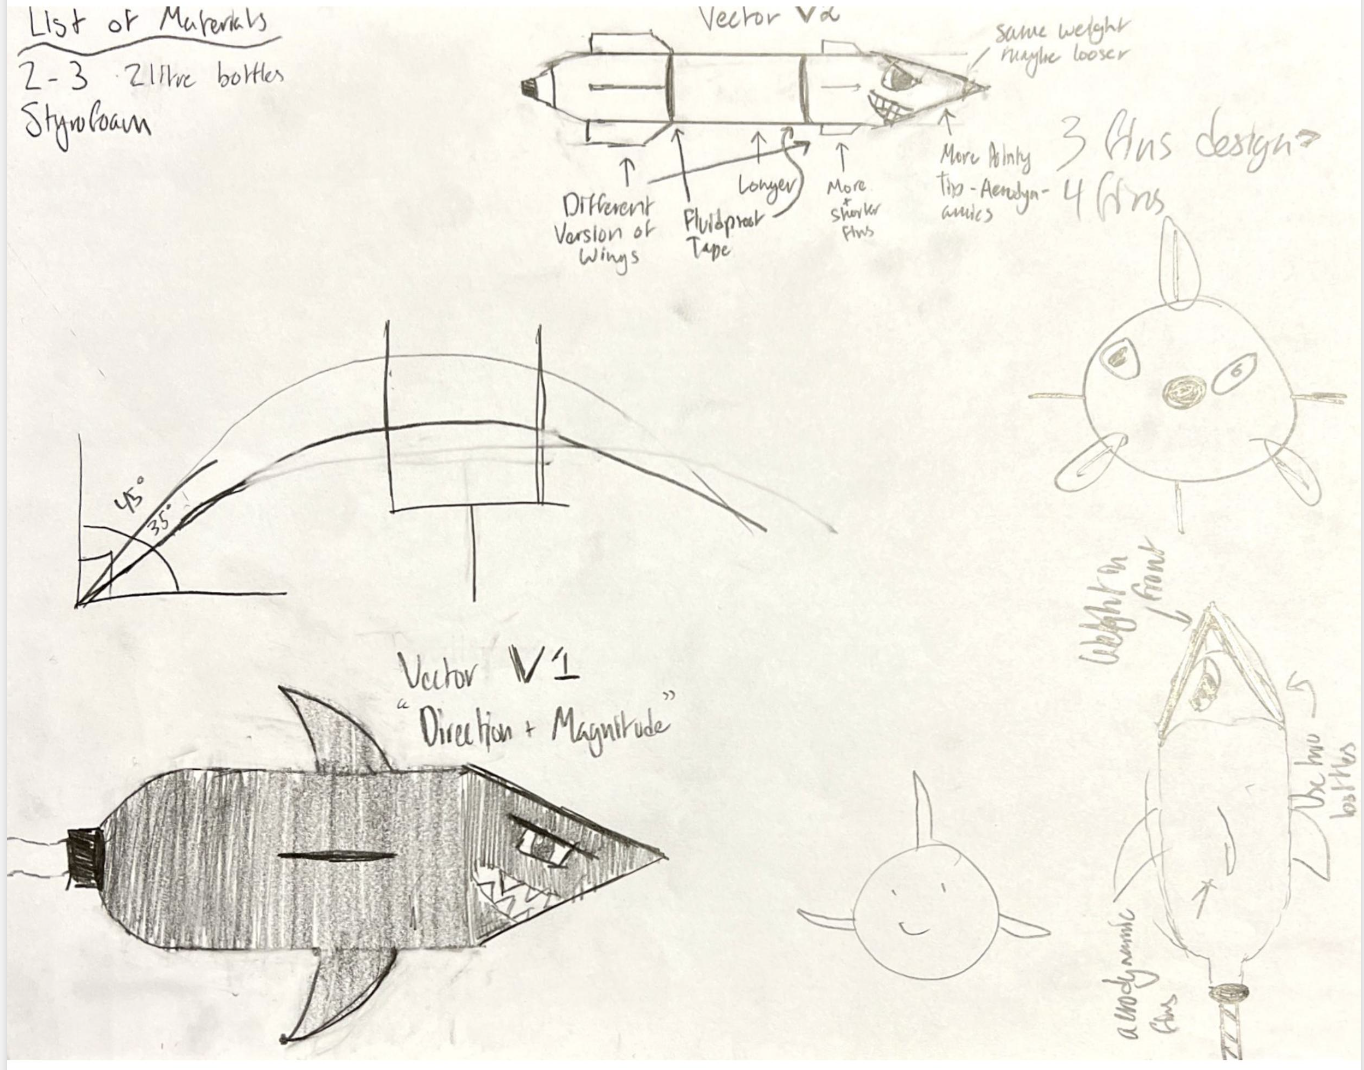 List of Materials
2-3 2 litre bottles
Styrofoam
Vector V2
same weight
maybe looser
Different
Version of
Wings
Fluidproof
Tape
Longer
More
+
shorter
fins
More Pointy
Tip - Aerodyn-
amics
3 fins design →
4 fins
45°
35°
Vector V1
"Direction + Magnitude"
Weight on
front
Use two
bottles
aerodynamic
fins